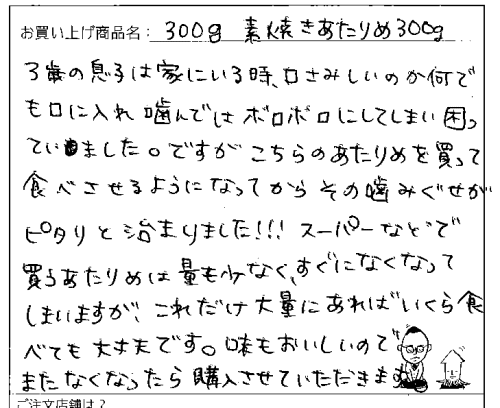 お買い上げ商品名: 300g 素焼きあたりめ300g
3歳の息子は家にいる時、口さみしいのか何で
も口に入れ噛んではボロボロにしてしまい困っ
ていました。ですがこちらのあたりめを買って
食べさせるようになってからその噛みぐせが
ピタリと治まりました!!! スーパーなどで
買うあたりめは量も少なく、すぐになくなって
しまいますが、これだけ大量にあればいくら食
べても大丈夫です。味もおいしいので
またなくなったら購入させていただきます
ご注文店舗は?